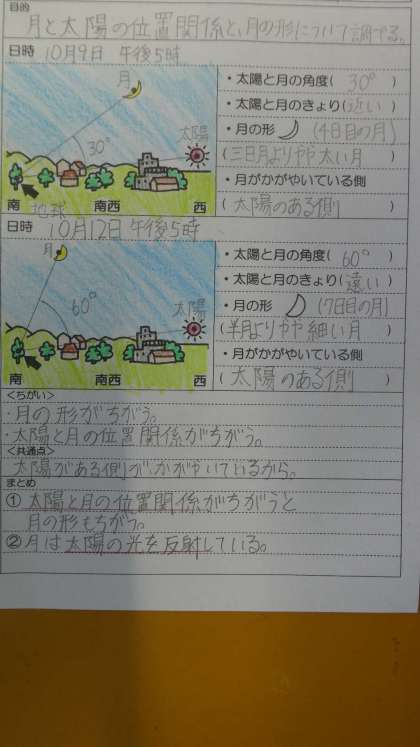 目的
月と太陽の位置関係と、月の形について調べる。
日時 10月9日 午後5時
月
30°
太陽
南 地球 南西 西
・太陽と月の角度( 30° )
・太陽と月のきょり( 近い )
・月の形 (4日目の月)
( 三日月よりやや太い月 )
・月がかがやいている側
( 太陽のある側 )
日時 10月12日 午後5時
月
60°
太陽
南 南西 西
・太陽と月の角度( 60° )
・太陽と月のきょり( 遠い )
・月の形 (7日目の月)
( 半月よりやや細い月 )
・月がかがやいている側
( 太陽のある側 )
<ちがい>
・月の形がちがう。
・太陽と月の位置関係がちがう。
<共通点>
太陽がある側が、かがやいているから。
まとめ
① 太陽と月の位置関係がちがうと
月の形もちがう。
②月は太陽の光を反射している。